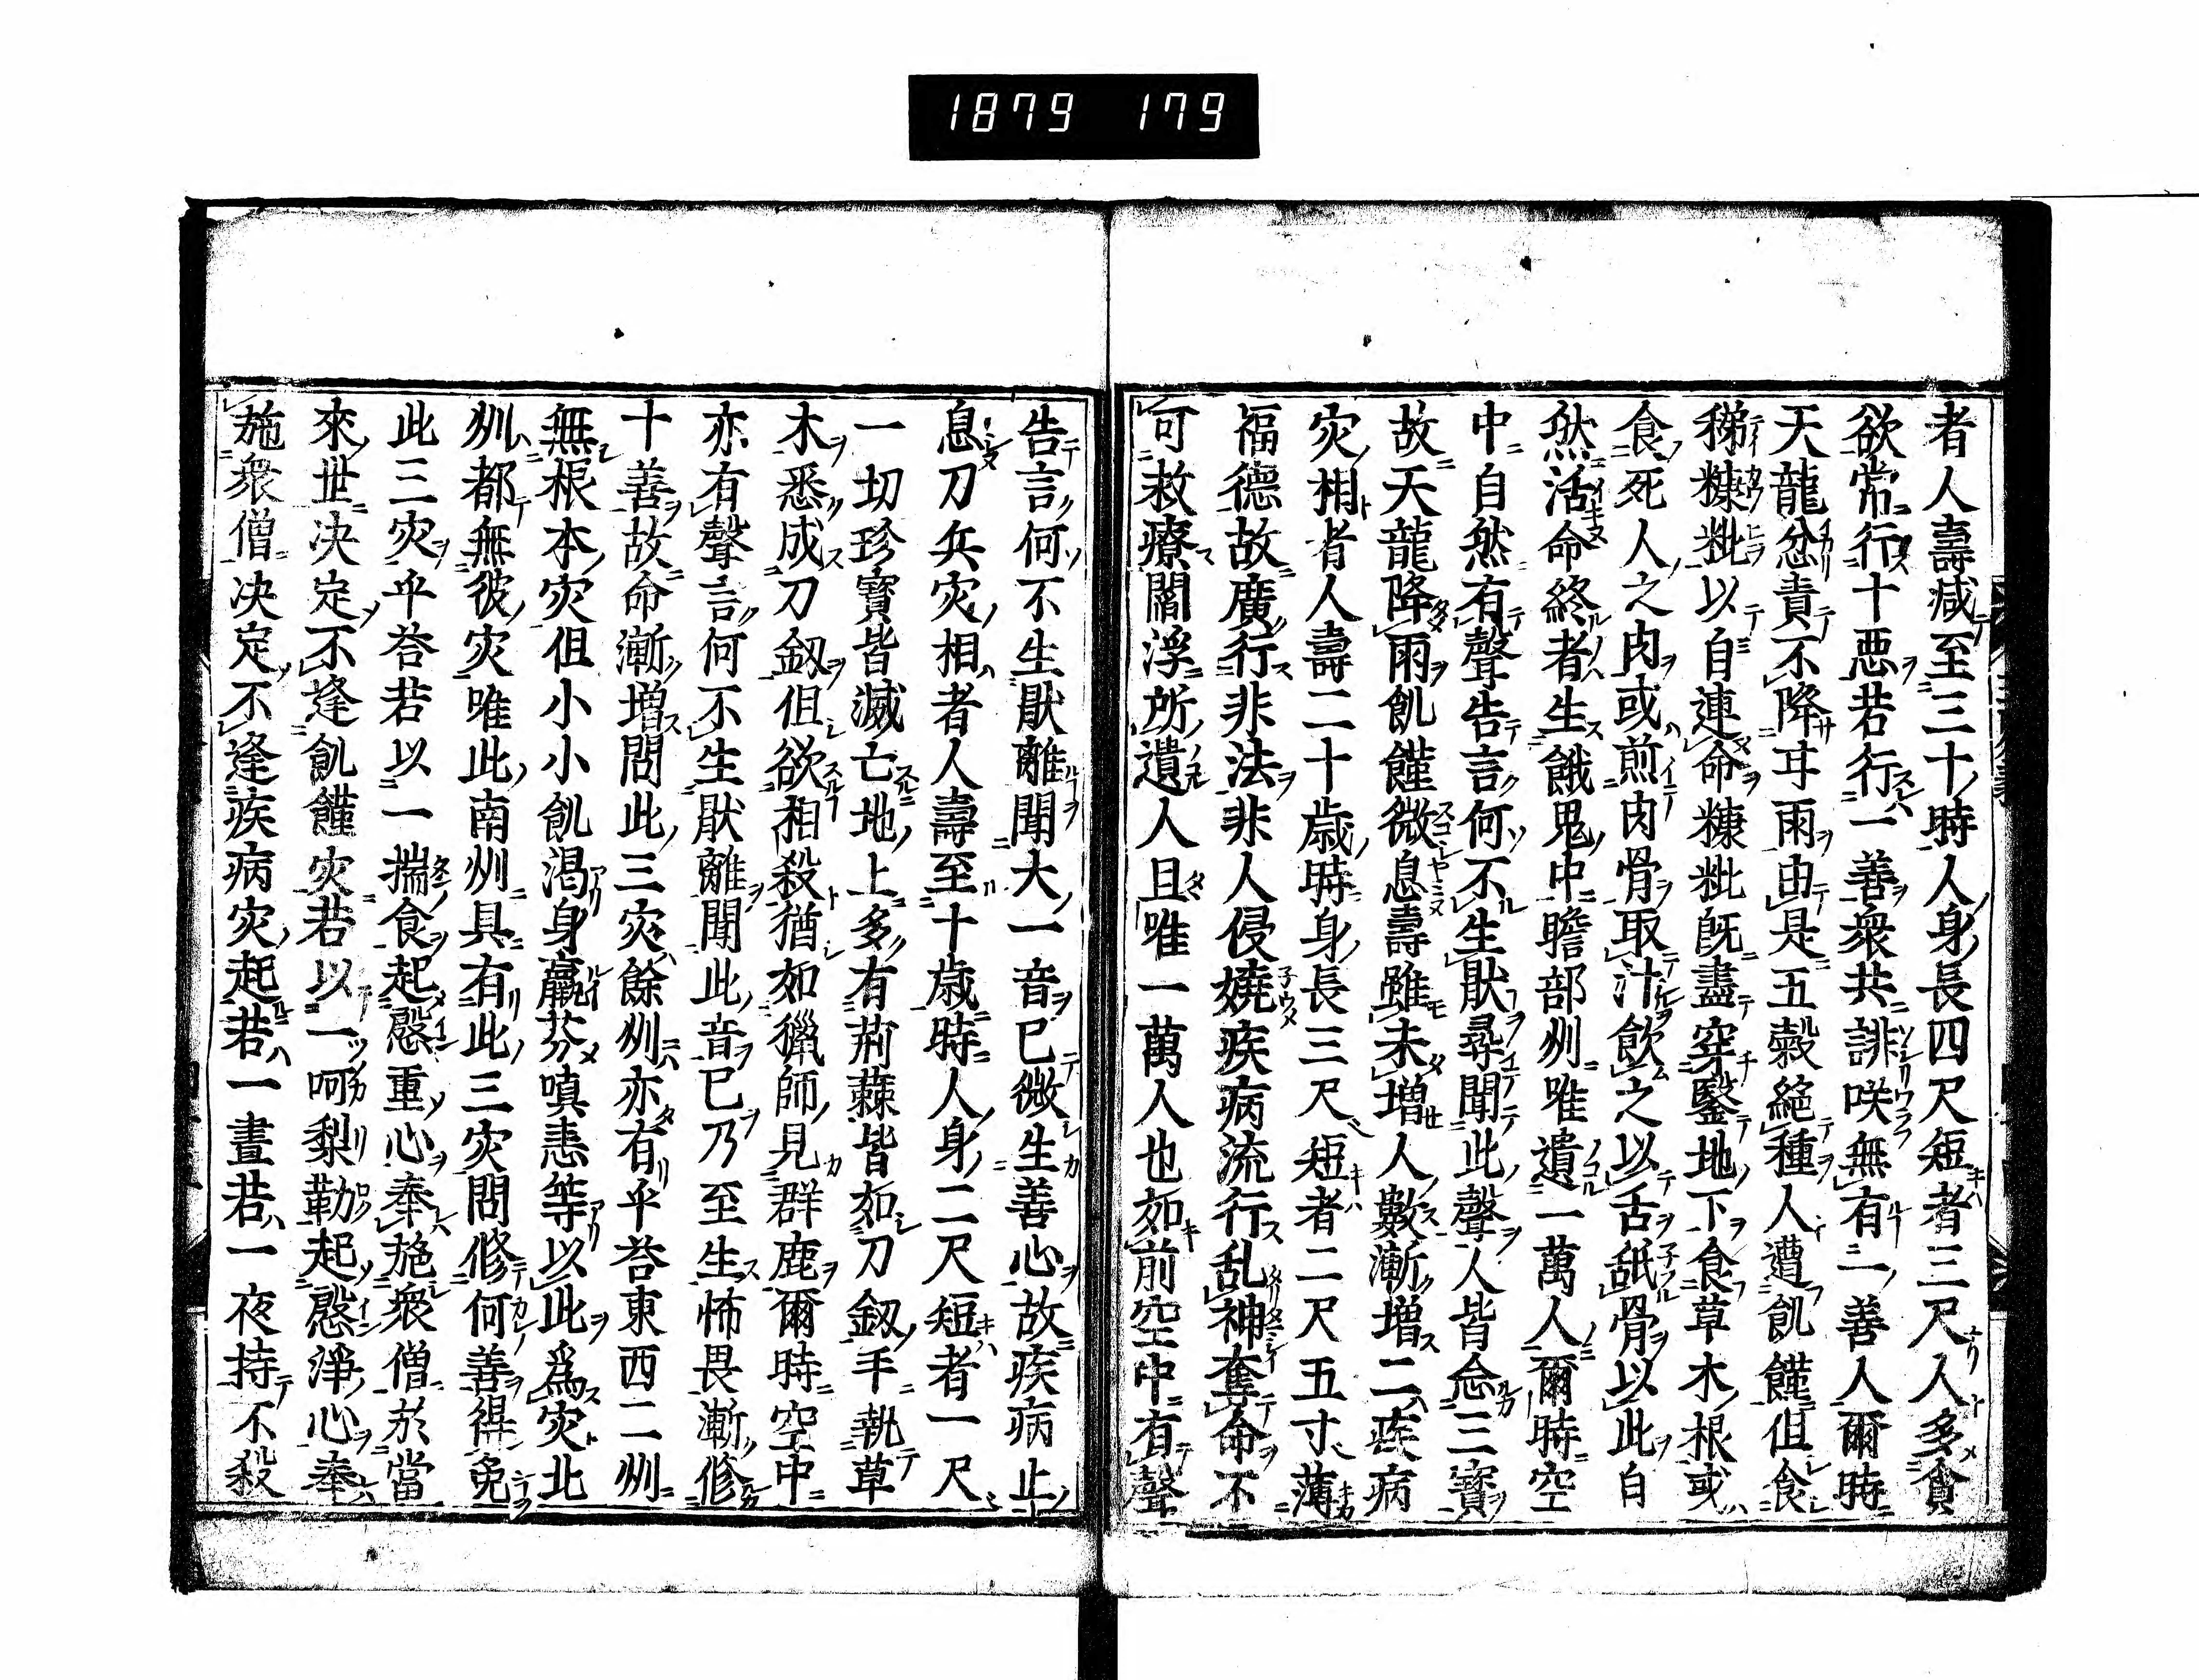 1879 179
者人壽減至三十時人身長四尺短者三尺人多貪
欲常行十悪若行一善衆共誹咲無有二善人爾時
天龍忿責不降㝍雨由是五穀絶種人遭飢饉但食
稊糠粃以自連命糠粃既盡穿鑿地下食草木根或
食死人之肉或煎肉骨取汁飲之以舌舐骨以此自
然活命終者生餓鬼中瞻部州唯遺一萬人爾時空
中自然有聲告言何不生猒尋聞此聲人皆念三寳
故天龍降雨飢饉微息壽雖未増人數漸増二疾病
灾相者人壽二十歳時身長三尺短者二尺五寸薄
福德故廣行非法非人侵嬈疾病流行乱神奪命不
可救療閻浮所遺人且唯一萬人也如前空中有聲
告言何不生猒離聞大一音已微生善心故疾病止
息刀兵灾相者人壽至十歳時人身二尺短者一尺
一切珍寳皆滅亡地上多有荊蕀皆如刀釼手執草
木悉成刀釼但欲相殺猶如獵師見群鹿爾時空中
亦有聲言何不生猒離聞此音已乃至生怖畏漸修
十善故命漸増問此三灾餘州亦有乎荅東西二州
無根本灾但小小飢渇身羸芬嗔恚等以此爲灾北
州都無彼灾唯此南州具有此三灾問修何善得免
此三灾乎荅若以一揣食起慇重心奉施衆僧於當
來世决定不逢飢饉灾若以一呵梨勒起慇淨心奉
施衆僧决定不逢疾病灾起若一晝若一夜持不殺